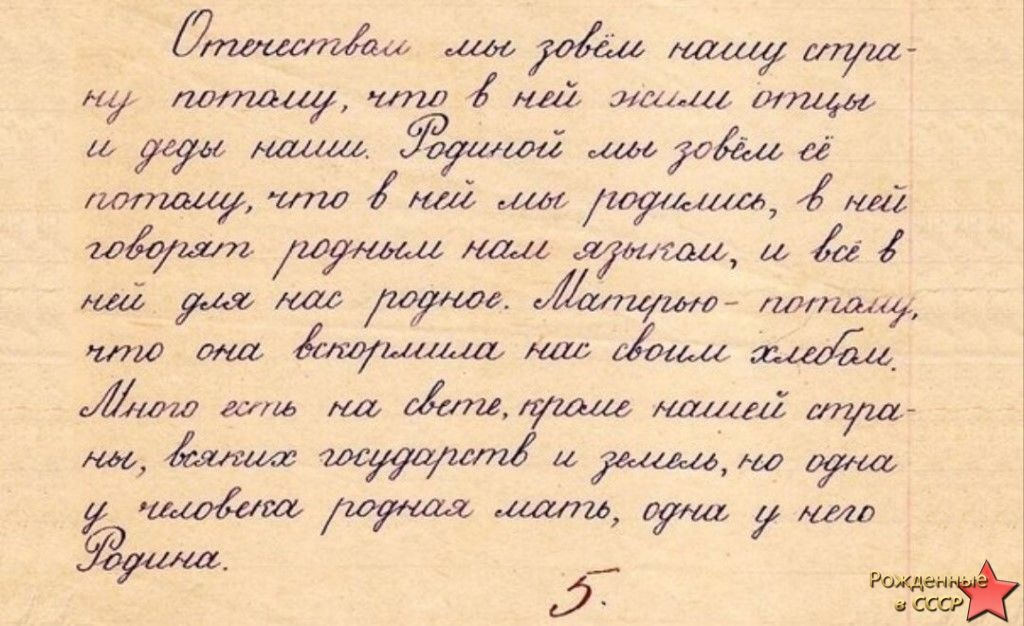 Отечеством мы зовём нашу стра-
ну потому, что в ней жили отцы
и деды наши. Родиной мы зовём её
потому, что в ней мы родились, в ней
говорят родным нам языком, и всё в
ней для нас родное. Матерью - потому,
что она вскормила нас своим хлебом.
Много есть на свете, кроме нашей стра-
ны, всяких государств и земель, но одна
у человека родная мать, одна у него
Родина.
5.
Рожденные
в СССР